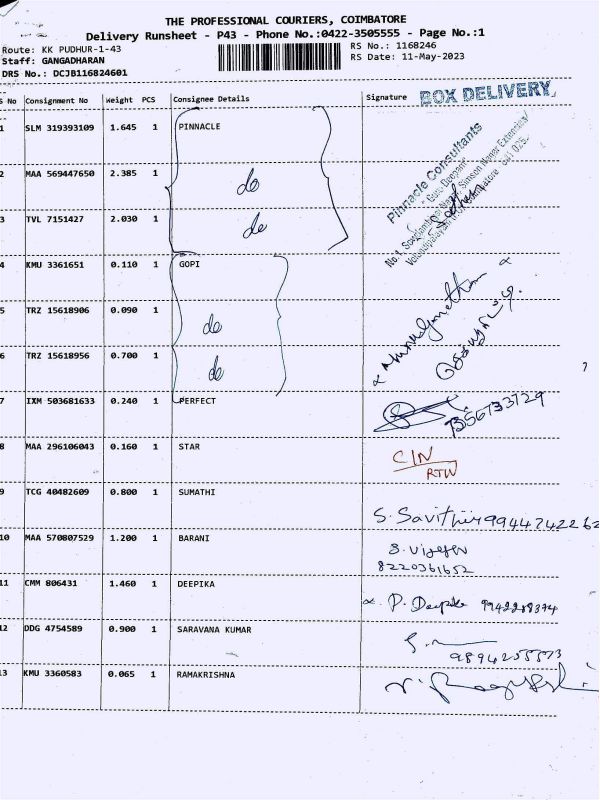 THE PROFESSIONAL COURIERS, COIMBATORE
Delivery Runsheet - P43 - Phone No.:0422-3505555 - Page No.:1
Route: KK PUDHUR-1-43 RS No.: 1168246
Staff: GANGADHARAN RS Date: 11-May-2023
DRS No.: DCJB116824601
S No Consignment No Weight PCS Consignee Details Signature BOX DELIVERY
1 SLM 319393109 1.645 1 PINNACLE
Pinnacle Consultants
"Guru Deepam"
2 MAA 569447650 2.385 1 do
3 TVL 7151427 2.030 1 do
4 KMU 3361651 0.110 1 GOPI
5 TRZ 15618906 0.090 1 do
6 TRZ 15618956 0.700 1 do
7 IXM 503681633 0.240 1 PERFECT 7356733729
8 MAA 296106043 0.160 1 STAR C/N
RTW
9 TCG 40482609 0.800 1 SUMATHI
S. Savithiri 9944742262
10 MAA 570807529 1.200 1 BARANI
8220361652
11 CMM 806431 1.460 1 DEEPIKA P. Deepika 9942208374
12 DDG 4754589 0.900 1 SARAVANA KUMAR
9894255573
13 KMU 3360583 0.065 1 RAMAKRISHNA